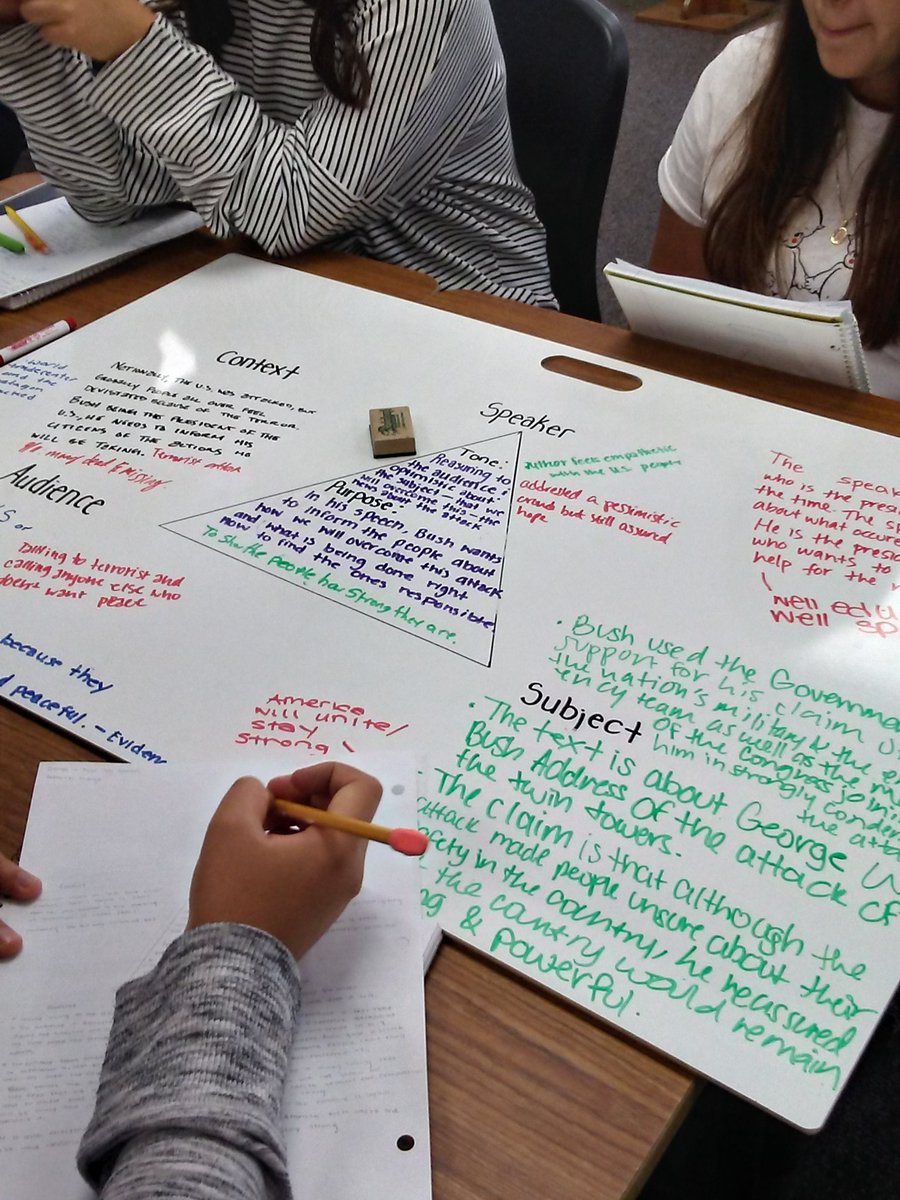 Context
NATIONALLY, THE U.S. WAS ATTACKED, BUT
GLOBALLY PEOPLE ALL OVER FEEL
DEVISTATED BECAUSE OF THE TERROR.
BUSH BEING THE PRESIDENT OF THE
U.S., HE NEEDS TO INFORM HIS
CITIZENS OF THE ACTIONS HE
WILL BE TAKING. Terrorist
many dead & missing
World
and the
Audience
or
to terrorist and
calling anyone else who
doesn't want peace
because they
peaceful. - Eviden
Speaker
Tone:
Reasuring to
the audience?
optimistic about
the subject - that we
will overcome this the
news about the attack
Purpose:
In his speech, Bush wants
to inform the people about
how we will overcome this attack
and what is being done right
now to find the ones responsible.
To show the people how strong they are.
Author feels empathetic
with the U.S. people
addressed a pessimistic
crowd but still assured
hope
The speak
who is the pres
the time. The s
about what occure
He is the presid
who wants to
help for the
well edu
well sp
America
will unite/
stay
strong
Subject
• Bush used the Governme
support for his claim
the nation's military & the e
ency team as well as the m
of the Congress joini
him in strongly condem
the atta
• The text is about George W
Bush Address Of the attack of
the twin towers.
The claim is that although the
attack made people unsure about their
safety in the country, he reassured
the country would remain
& powerful.